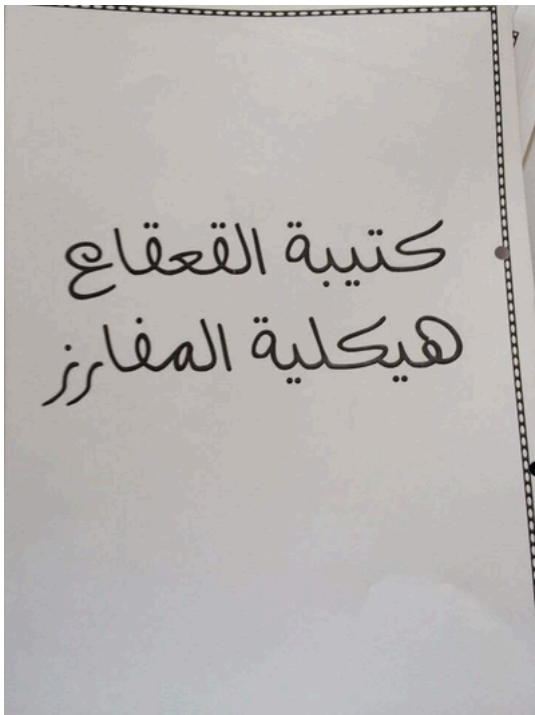 كتيبة القعقاع
هيكلية المفارز